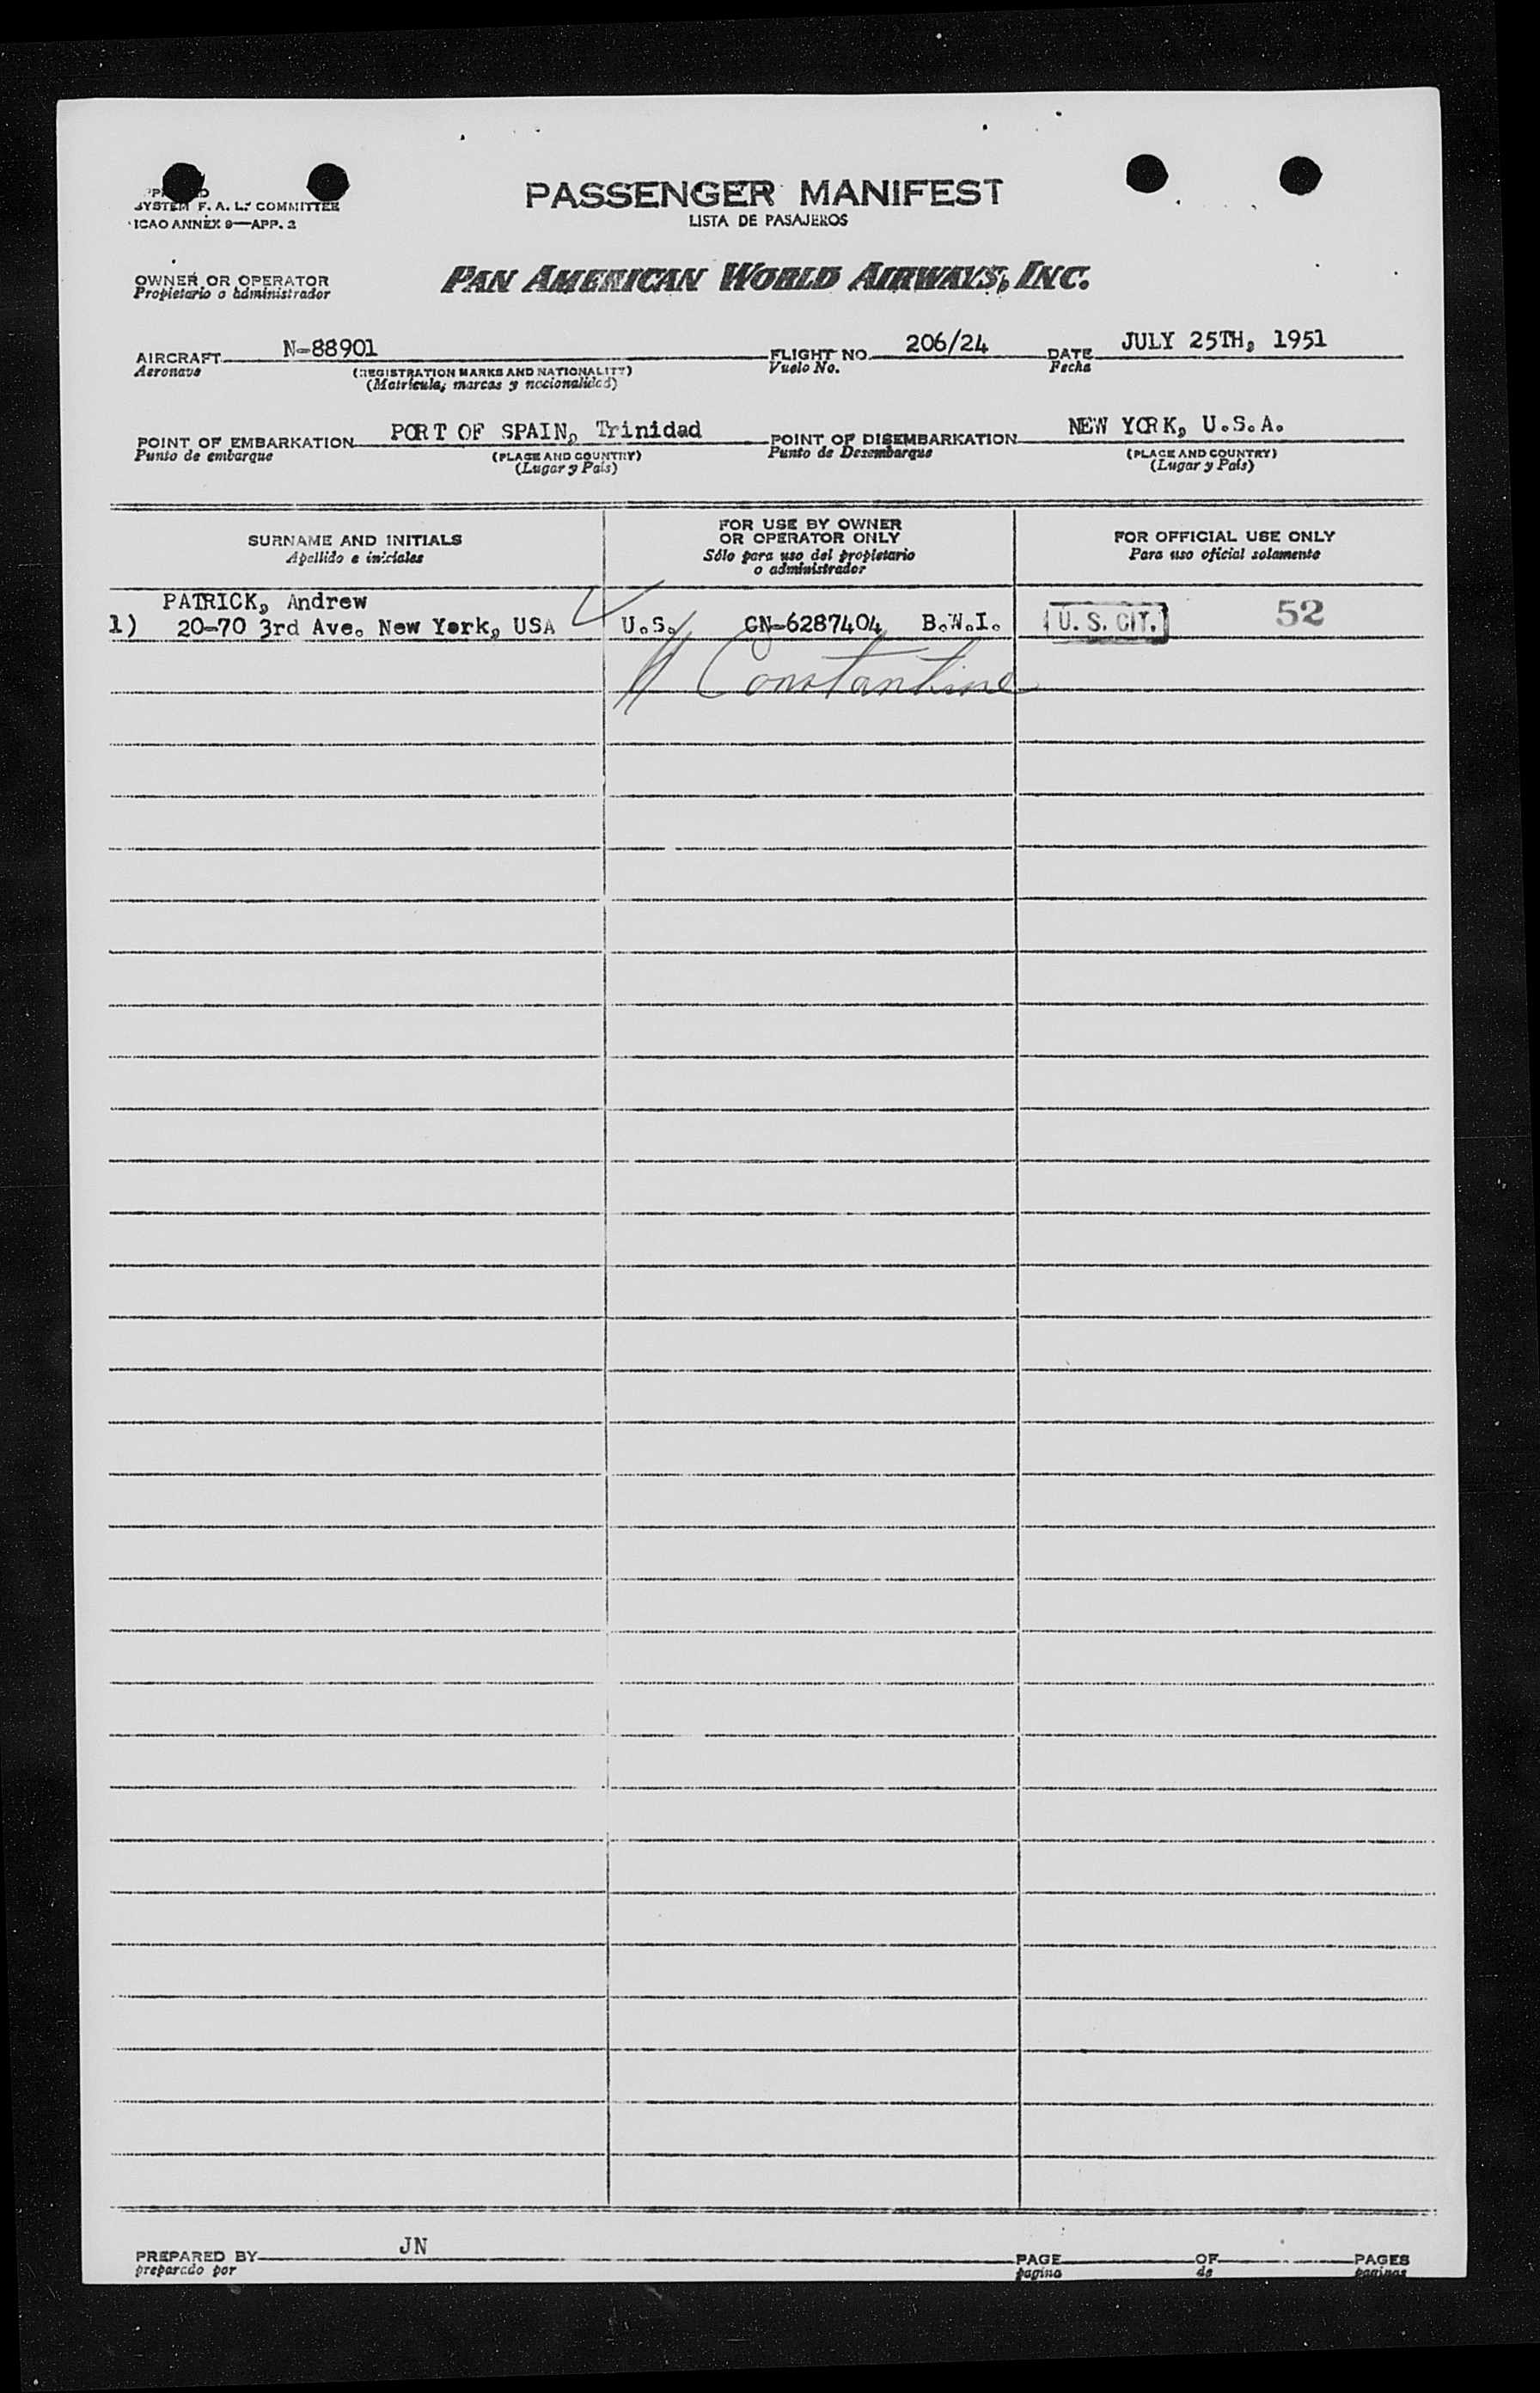 PASSENGER MANIFEST
LISTA DE PASAJEROS
SYSTEM F. A. L. COMMITTEE
ICAO ANNEX 9—APP. 2
OWNER OR OPERATOR
Propietario o administrador
PAN AMERICAN WORLD AIRWAYS, INC.
AIRCRAFT N-88901 FLIGHT NO. 206/24 DATE JULY 25TH, 1951
Aeronave (REGISTRATION MARKS AND NATIONALITY) Vuelo No. Fecha
(Matrícula, marcas y nacionalidad)
POINT OF EMBARKATION PORT OF SPAIN, Trinidad POINT OF DISEMBARKATION NEW YORK, U.S.A.
Punto de embarque (PLACE AND COUNTRY) Punto de Desembarque (PLACE AND COUNTRY)
(Lugar y País) (Lugar y País)
SURNAME AND INITIALS
Apellido e iniciales
FOR USE BY OWNER
OR OPERATOR ONLY
Sólo para uso del propietario
o administrador
FOR OFFICIAL USE ONLY
Para uso oficial solamente
PATRICK, Andrew
1) 20-70 3rd Ave. New York, USA U.S. CN-6287404 B.W.I. U. S. CIT. 52
Constantine
PREPARED BY JN PAGE OF PAGES
preparado por pagina de paginas